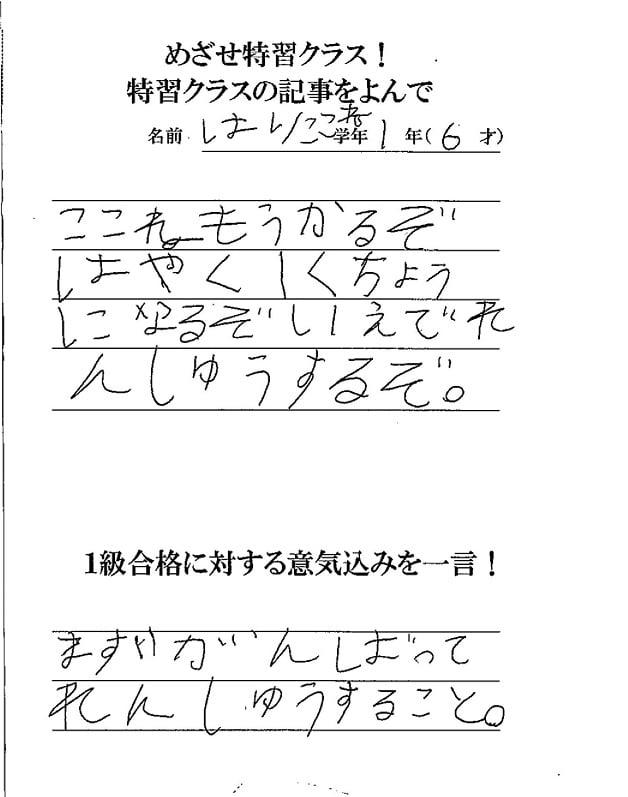 めざせ特習クラス！
特習クラスの記事をよんで
名前 はりここね 学年 1 年(6 才)
ここねもうかるぞ
はやくしくちょう
になるぞいえでれ
んしゅうするぞ。
1級合格に対する意気込みを一言！
まずがんばって
れんしゅうすること。